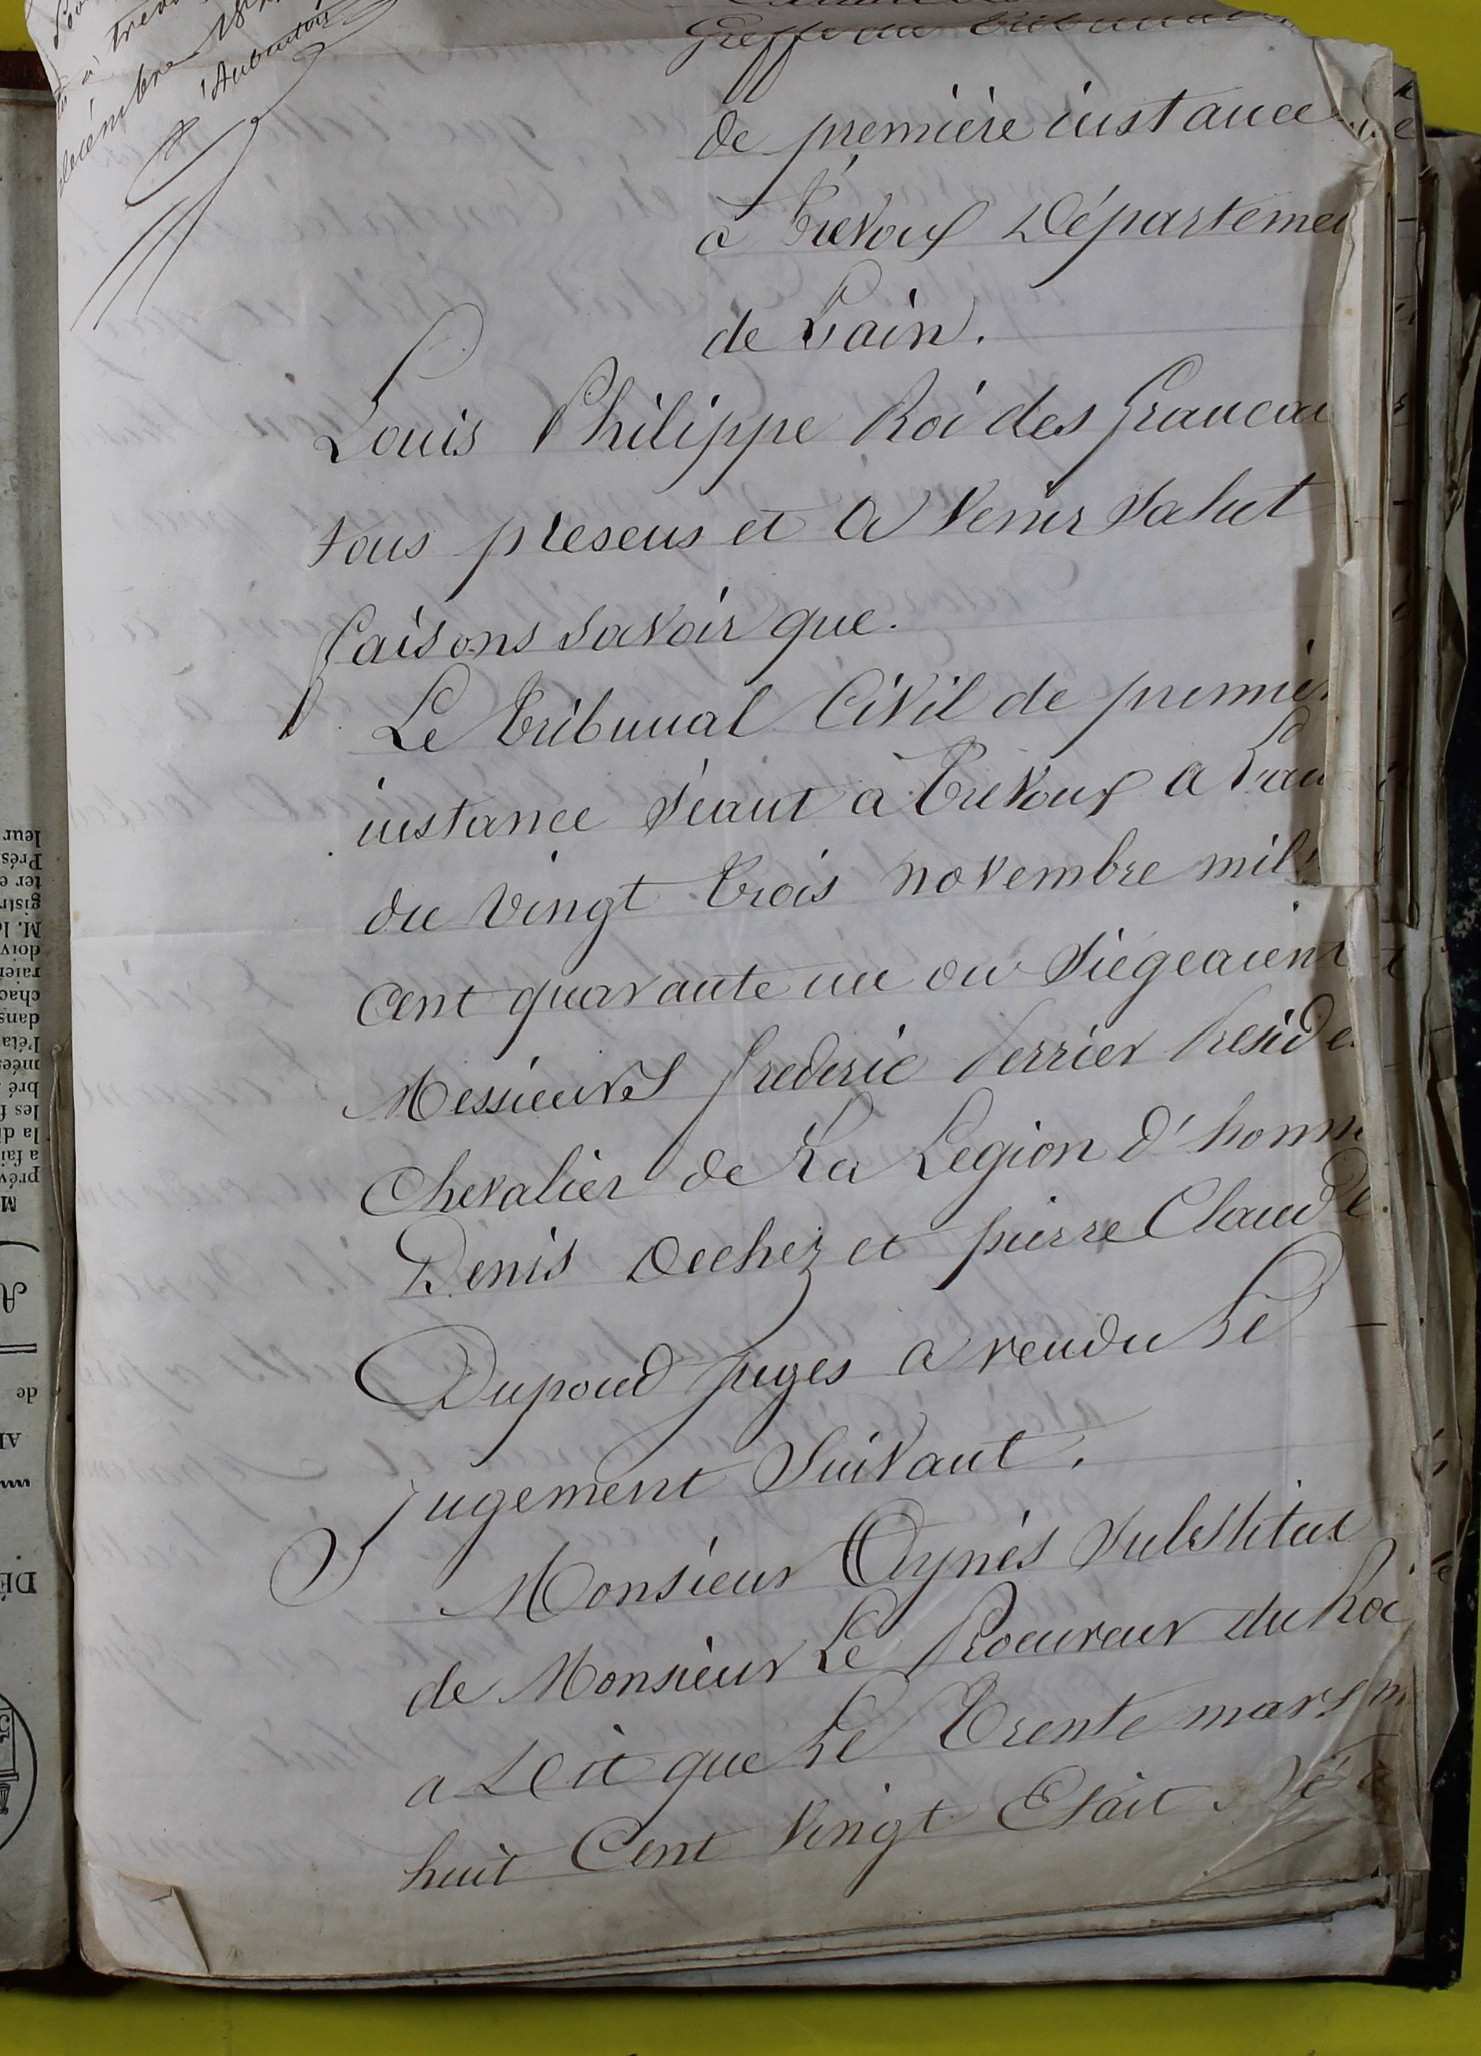 décembre
Greffe du tribunal
de première instance
à Trevoux Département
de Lain.
Louis Philippe Roi des francai
tous presens et a venir salut
faisons savoir que.
Le tribunal Civil de premiè
instance séant à Trevoux a Lau
du vingt trois novembre mil
cent quarante un ou siégeaient
Messieurs frederic perrier preside
Chevalier de La Legion d'honne
Denis dechez et pierre Claude
Dupond juges a rendu Le
jugement suivant.
Monsieur Aynès substitut
de Monsieur Le Procureur du Roi
a Dit que Le Trente mars m
huit Cent vingt Etait
leur
Prés
ter e
gistr
M. le
doiv
raien
chac
dans
l'éta
mées
bré
les f
la di
a fai
prév
M
A
de
AL
DÉ